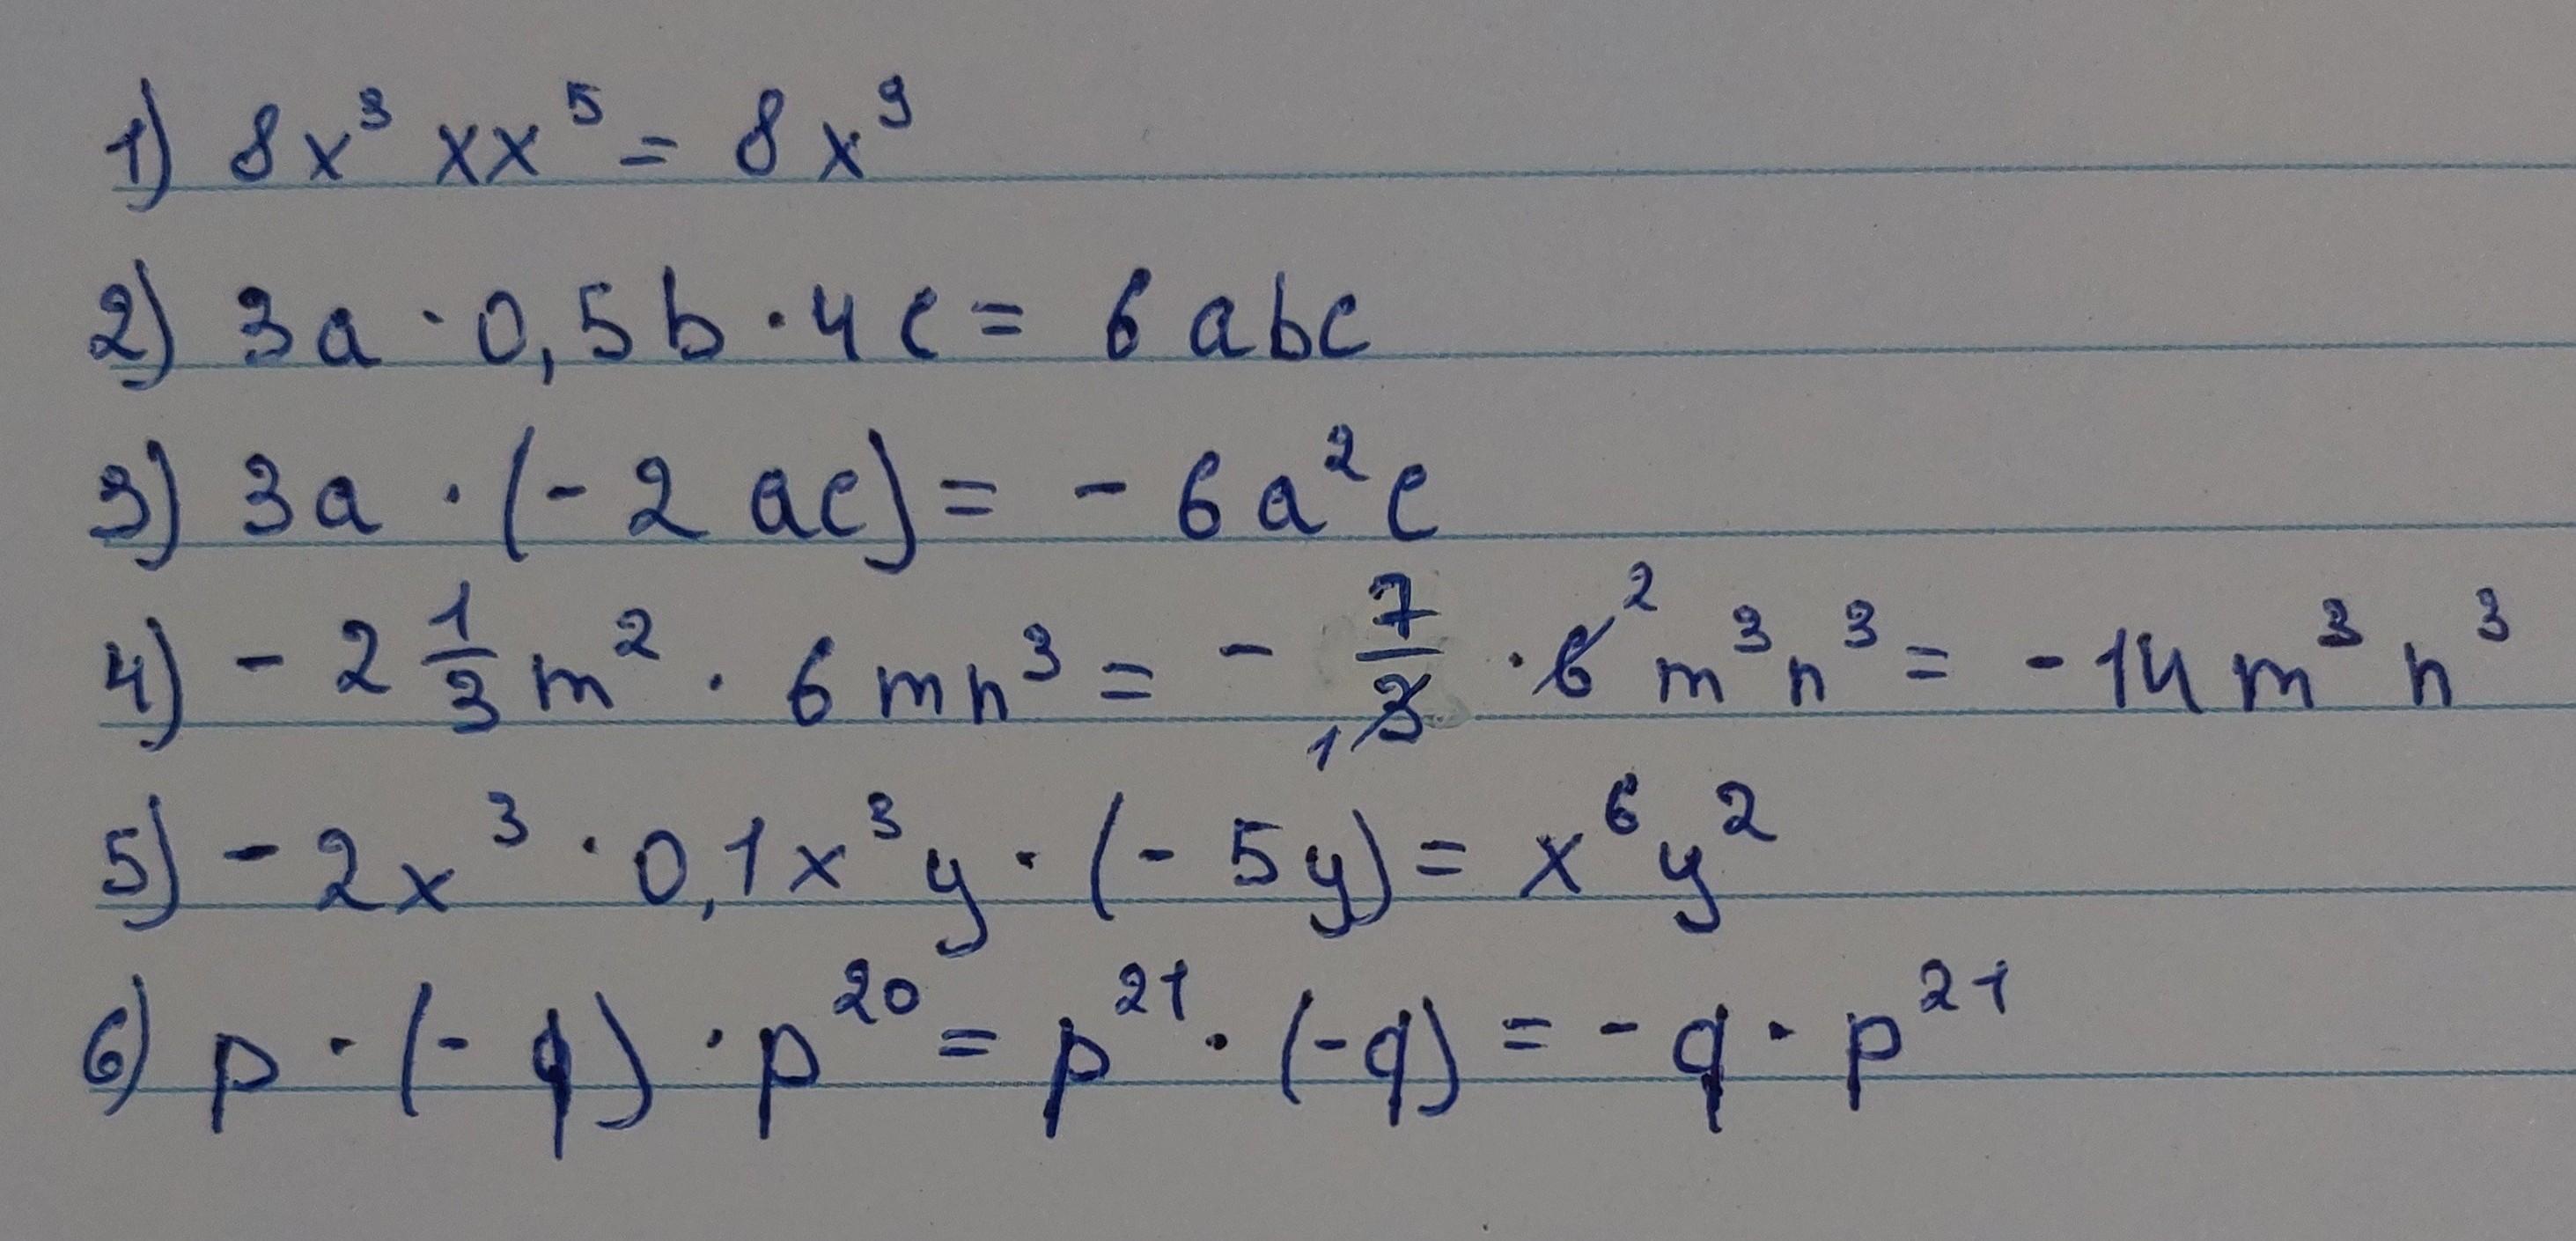 1) 8x³ xx⁵ = 8x⁹
2) 3a · 0,5b · 4c = 6abc
3) 3a · (-2ac) = -6a²c
4) -2 1/3 m² · 6mn³ = - 7/3 1 · 6 2 m³n³ = -14m³n³
5) -2x³ · 0,1x³y · (-5y) = x⁶y²
6) p · (-q) · p²⁰ = p²¹ · (-q) = -q · p²¹